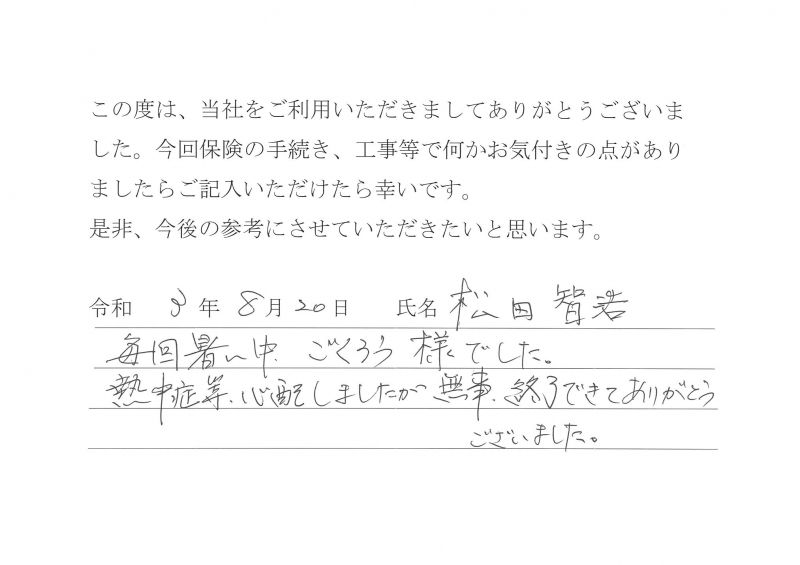 この度は、当社をご利用いただきましてありがとうございま
した。今回保険の手続き、工事等で何かお気付きの点があり
ましたらご記入いただけたら幸いです。
是非、今後の参考にさせていただきたいと思います。
令和 3 年 8 月 20 日 氏名 松田 智
毎回暑い中、ごくろう様でした。
熱中症等、心配しましたが無事、終了できてありがとう
ございました。